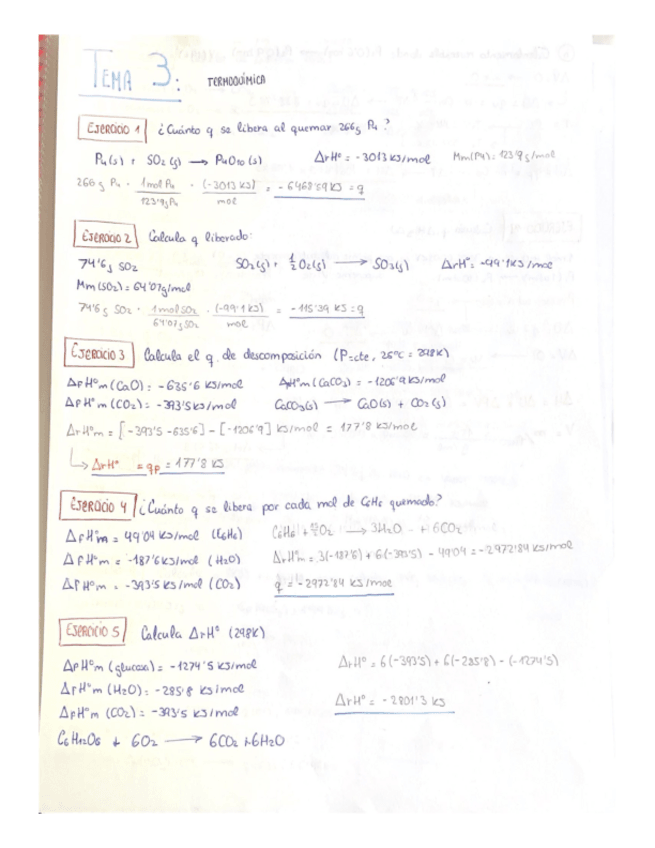 TEMA 3: TERMOQUÍMICA
EJERCICIO 1 ¿Cuánto q se libera al quemar 266g P4?
P4(s) + SO2(g) → P4O10(s) ΔrHº = -3013 KJ/mol Mm(P4) = 123'9g/mol
266g P4 · 1mol P4 / 123'9g P4 · (-3013 KJ) / mol = -6468'59 KJ = q
EJERCICIO 2 Calcula q liberado:
74'6g SO2 SO2(g) + 1/2 O2(g) → SO3(g) ΔrHº = -99'1KJ/mol
Mm(SO2) = 64'07g/mol
74'6g SO2 · 1mol SO2 / 64'07g SO2 · (-99'1 KJ) / mol = -115'39 KJ = q
EJERCICIO 3 Calcula el q. de descomposición (P=cte, 25ºC = 298K)
ΔfHºm (CaO) = -635'6 KJ/mol ΔfHºm (CaCO3) = -1206'9 KJ/mol
ΔfHºm (CO2) = -393'5 KJ/mol CaCO3(s) → CaO(s) + CO2(g)
ΔrHºm = [-393'5 -635'6] - [-1206'9] KJ/mol = 177'8 KJ/mol
↳ ΔrHº = qp = 177'8 KJ
EJERCICIO 4 ¿Cuánto q se libera por cada mol de C6H6 quemado?
ΔfHºm = 49'04 KJ/mol (C6H6) C6H6 + 15/2 O2 → 3H2O + 6CO2
ΔfHºm = -187'6 KJ/mol (H2O) ΔrHºm = 3(-187'6) + 6(-393'5) - 49'04 = -2972'84 KJ/mol
ΔfHºm = -393'5 KJ/mol (CO2) q = -2972'84 KJ/mol
EJERCICIO 5 Calcula ΔrHº (298K)
ΔfHºm (glucosa) = -1274'5 KJ/mol ΔrHº = 6(-393'5) + 6(-285'8) - (-1274'5)
ΔfHºm (H2O) = -285'8 KJ/mol
ΔrHº = -2801'3 KJ
ΔfHºm (CO2) = -393'5 KJ/mol
C6H12O6 + 6O2 → 6CO2 + 6H2O